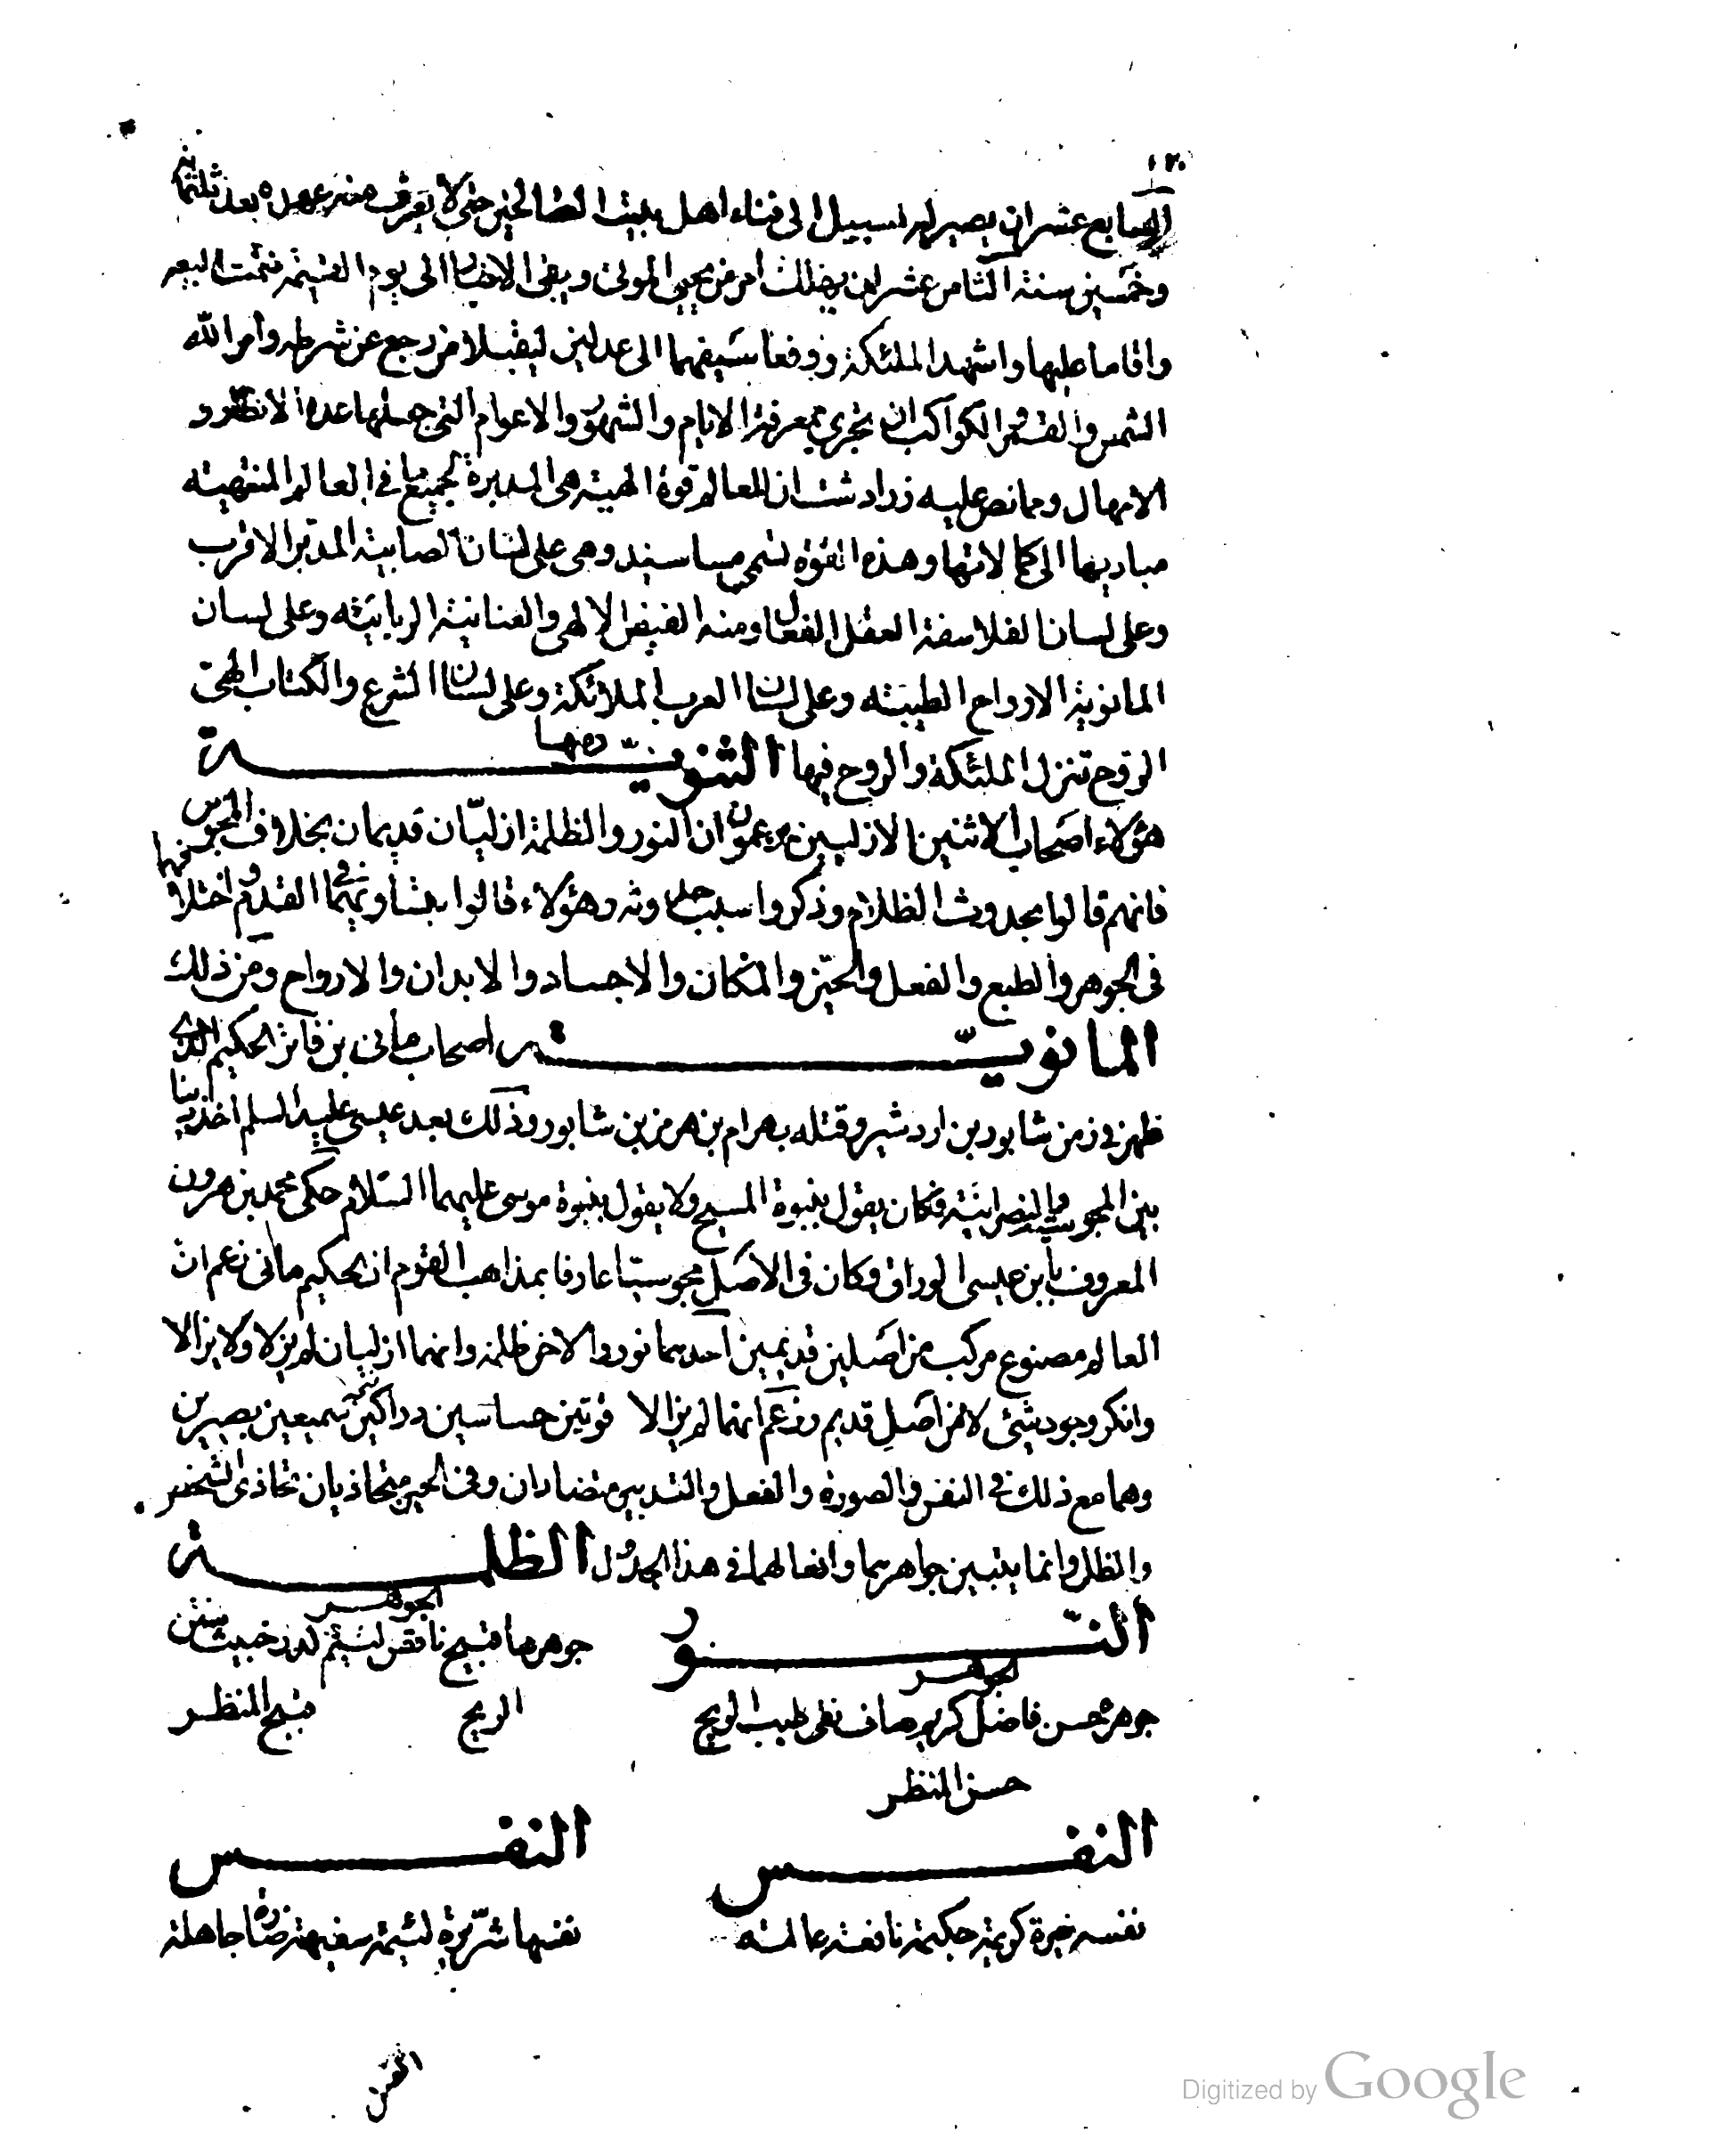 ١٢٠
السابع عشر ان يصير له سبيل الى فناء اهل بيت الصالحين حتى لا يعرف منه عهده بعد ثلثمائه
وخمسين سنة الثامن عشر ان يهلك امر من يحيى الموتى ويبقى الاخفا الى يوم القيمة فتمت البيعه
واقاما عليها واشهدا الملئكة ووقعا سيفهما الى عدلين ليقبلا من رجع عن شرطه وامر الله
الشمس والقمر والكواكب ان تجرى بمعرفة الايام والشهور والاعوام التى جعلها عدة الانظار و
الامهال ومما نص عليه زرادشت ان للعالم قوة الهية هى المدبرة لجميع ما فى العالم المنتهيه
مباديها الى كمالاتها وهذه القوة تسمى مساسبند وهى على لسان الصابية المدبر الاقرب
وعلى لسان الفلاسفة العقل الفعال ومنه الفيض الالهى والعناية الربانيه وعلى لسان
المانوية الارواح الطيبه وعلى لسان العرب الملائكة وعلى لسان الشرع والكتاب الهى
الروح تنزل الملئكة والروح فيها الثنويـــــة
هؤلاء اصحاب الاثنين الازليين يزعمون ان النور والظلمة ازليان قديمان بخلاف المجوس
فانهم قالوا بحدوث الظلام وذكروا سبب حدوثه وهؤلاء قالوا بتساويهما فى القدم واختلافهما
فى الجوهر والطبع والفعل والحيز والمكان والاجساد والابدان والارواح ومن ذلك
المانويـــــة اصحاب مانى بن فاتر الحكيم الذى
ظهر فى زمن شابور بن اردشير وقتله بهرام بن هرمز بن شابور وذلك بعد عيسى عليه السلم اخذ دينا
بين المجوسية والنصرانية فكان يقول بنبوة المسيح ولا يقول بنبوة موسى عليهما السلام حكى محمد بن هرون
المعروف بابن عيسى الوراق وكان فى الاصل مجوسيا عارفا بمذاهب القوم ان الحكيم مانى زعم ان
العالم مصنوع مركب من اصلين قديمين احدهما نور والاخر ظلمة وانهما ازليان لم يزالا ولا يزالا
وانكر وجود شئ لا من اصل قديم وزعم انهما لم يزالا قوتين حساسين دراكين سميعين بصيرين
وهما مع ذلك فى النفس والصورة والفعل والتدبير متضادان وفى الحيز متحاذيان تحاذى الشخص
والظل وانما يتبين جواهرهما وافعالهما فى هذا الجدول الظلمـــة
النـــور
الجوهـر
جوهرها قبيح ناقص لئيم كدر خبيث منتن
الجوهـر
الريح قبيح المنظر
جوهره حسن فاضل كريم صاف نقى طيب الريح
حسن المنظر
النفـــس
النفـــس
نفسه خيرة كريمة حكيمة نافعة عالمه
نفسها شريرة لئيمة سفيهة ضارة جاهلة
Digitized by Google